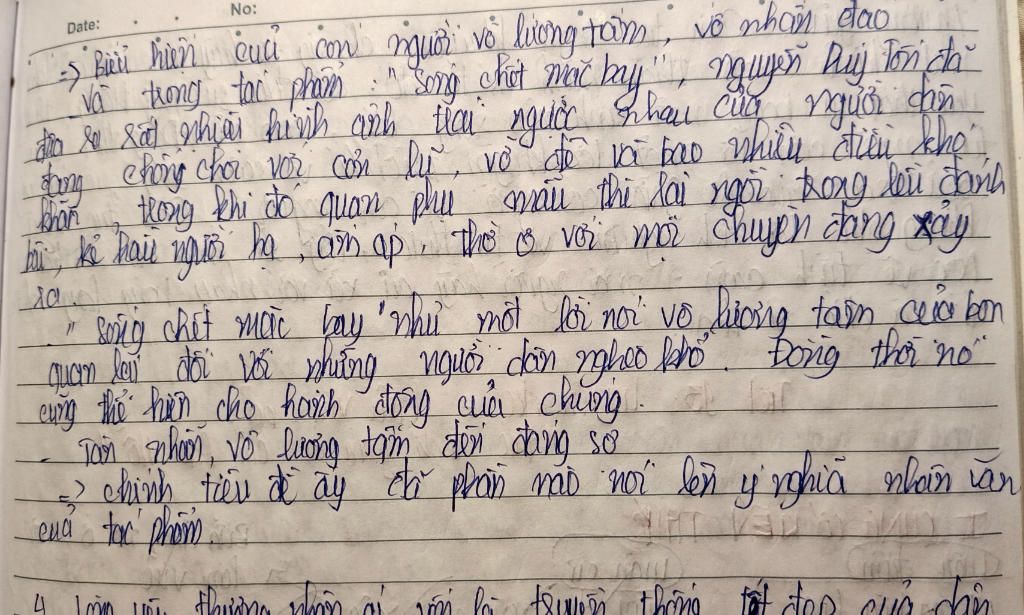 Date: No:
=> Biểu hiện cuả con người vô lương tâm, vô nhân đạo
- Và trong tác phẩm: "Sống chết mặc bay", nguyễn Duy Tốn đã
đưa ra rất nhiều hình ảnh trái ngược nhau của người dân
đang chống chọi với cơn lũ, vỡ đê và bao nhiêu điều khó
khăn, trong khi đó quan phụ mẫu thì lại ngồi trong lều đánh
bài, kẻ hầu người hạ, ấm áp, thờ ơ với mọi chuyện đang xảy
ra
" Sống chết mặc bay" như một lời nói vô lương tâm của bọn
quan lại đối với những người dân nghèo khổ. Đồng thời nó
cũng thể hiện cho hành động của chúng.
- Tàn nhẫn, vô lương tâm đến đáng sợ
=> chính tiêu đề ấy đã phần nào nói lên ý nghĩa nhân văn
cuả tác phẩm.
4. Lòng yêu thương nhân ái vốn là truyền thống tốt đẹp của dân